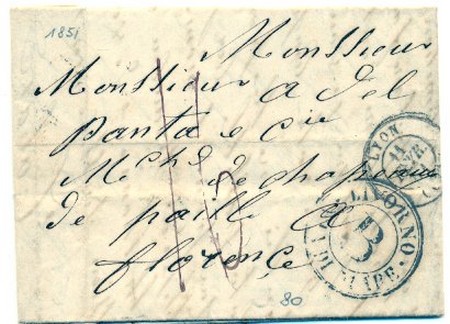 1851
Monsieur
Monsieur A Del
Panta e Cie
Mchd de chapeaux
de paille a
florence
LYON
LIVORNO
B
80